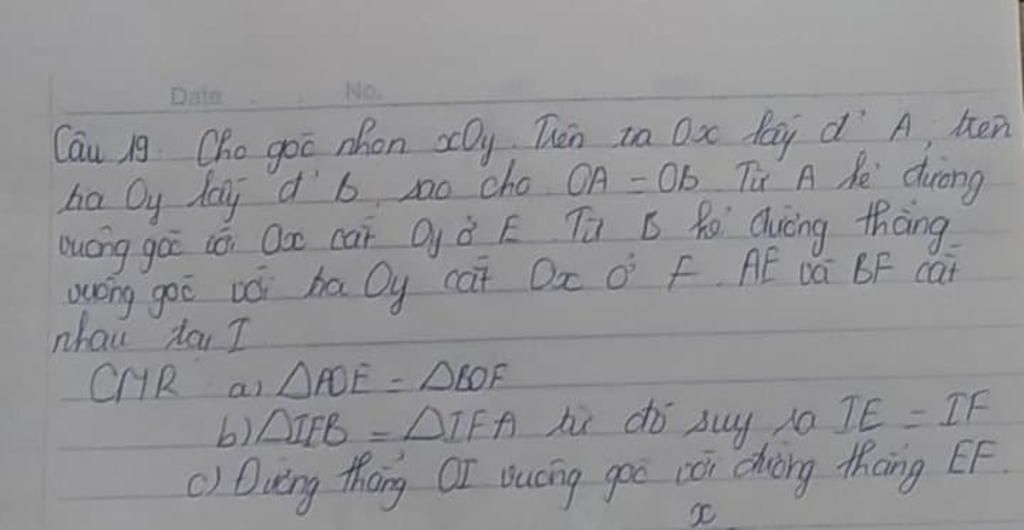 Date No.
Câu 19. Cho góc nhọn xOy. Trên tia Ox lấy đ' A, trên
tia Oy lấy đ' B, sao cho OA = OB. Từ A kẻ đường
vuông góc với Ox cắt Oy ở E. Từ B kẻ đường thẳng
vuông góc với tia Oy cắt Ox ở F. AE và BF cắt
nhau tại I
CMR a) △AOE = △BOF
b) △IEB = △IFA từ đó suy ra IE = IF
c) Đường thẳng OI vuông góc với đường thẳng EF.
x